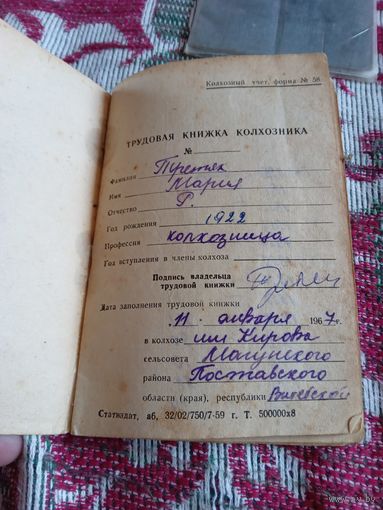 Колхозный учет, форма № 58
ТРУДОВАЯ КНИЖКА КОЛХОЗНИКА
№
Фамилия Третьяк
Имя Мария
Отчество Р.
Год рождения 1922
Профессия колхозница
Год вступления в члены колхоза
Подпись владельца
трудовой книжки
Дата заполнения трудовой книжки
11 января 1967 г.
в колхозе им Кирова
сельсовета
района Поставского
области (края), республики Витебской
Статиздат, аб, 32/02/750/7-59 г. Т. 500000х8